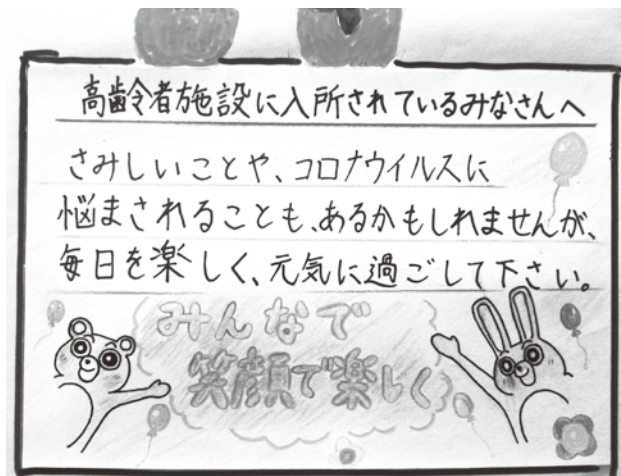 高齢者施設に入所されているみなさんへ
さみしいことや、コロナウイルスに
悩まされることも、あるかもしれませんが、
毎日を楽しく、元気に過ごして下さい。
みんなで
笑顔で楽しく